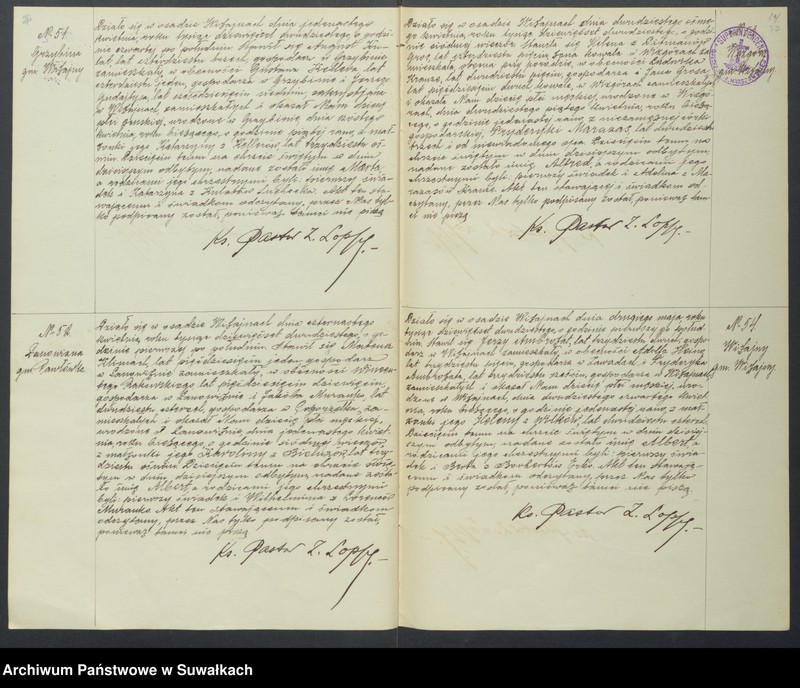 № 51.
Grzybina
gm. Wiżajny
Działo się w osadzie Wiżajnach dnia jedenastego
kwietnia, roku tysiąc dziewięćset dwudziestego, o godzi-
nie czwartej po południu. Stawił się August
lat czterdzieści, gospodarz w Grzybinie
zamieszkały, w obecności Gustawa Kellera, lat
czterdzieści jeden, gospodarza z Grzybiny i Jerzego
lat sześćdziesięciu siedmiu,
w Wiżajnach, zamieszkałych i okazał Nam dziecię
płci żeńskiej, urodzone w Grzybinie, dnia szóstego
kwietnia, roku bieżącego, o godzinie piątej rano, z mał-
żonki jego Katarzyny z Kellerów, lat trzydzieści oś-
miu. Dziecięciu temu na chrzcie świętym w dniu
dzisiejszym odbytym, nadane zostało imię Marta,
a rodzicami jego chrzestnymi byli: pierwszy świa-
dek i Katarzyna z Akt ten sta-
wającemu i świadkom odczytany, przez Nas tyl-
ko podpisany został, ponieważ tamci nie piszą
Ks. Pastor Z. Lopp.
№ 52.
gm. Pawłówka
Działo się w osadzie Wiżajnach dnia czternastego
kwietnia, roku tysiąc dziewięćset dwudziestego, o go-
dzinie pierwszej po południu. Stawił się Mateusz
lat pięćdziesięciu jeden, gospodarz
w zamieszkały, w obecności Wincen-
tego lat pięćdziesięciu dziewięciu,
gospodarza w i Jakóba Muranko, lat
dwudziestu czterech, gospodarza w za-
mieszkałych i okazał Nam dziecię płci męskiej,
urodzone w dnia jedenastego kwiet-
nia, roku bieżącego, o godzinie siódmej wieczór,
z małżonki jego Karoliny z lat trzy-
dziestu ośmiu. Dziecięciu temu na chrzcie świę-
tym w dniu, dzisiejszym odbytym, nadane zosta-
ło imię Albert, a rodzicami jego chrzestnymi
byli: pierwszy świadek i Wilhelmina z
Muranko. Akt ten stawającemu i świadkom
odczytany, przez Nas tylko podpisany został,
ponieważ tamci nie piszą
Ks. Pastor Z. Lopp.
gm. Wiżajny
Działo się w osadzie Wiżajnach dnia dwudziestego ósme-
go kwietnia, roku tysiąc dziewięćset dwudziestego, o godzi-
nie siódmej wieczór. Stawiła się Helena z
Gros, lat trzydziestu pięciu, żona kowala w za-
mieszkała, w obecności Ludwika
Krauze, lat dwudziestu pięciu, gospodarza i Jana Grosa,
lat pięćdziesięciu dwóch, kowala, w zamieszkałych
i okazała Nam dziecię płci męskiej urodzone w
dnia dwudziestego piątego kwietnia, roku bieżą-
cego, o godzinie jedenastej rano, z niezamężnej córki
gospodarskiej, Fryderyki Marazas, lat dwudziestu
trzech i od ojca niewiadomego. Dziecięciu temu na
chrzcie świętym w dniu dzisiejszym odbytym,
nadane zostało imię Alfred, a rodzicami jego
chrzestnymi byli: pierwszy świadek i Adolina z Ma-
razasów Krauze. Akt ten stawającej i świadkom od-
czytany, przez Nas tylko podpisany został, ponieważ tam-
ci nie piszą
Ks. Pastor Z. Lopp.
№ 54.
Wiżajny
gm. Wiżajny
Działo się w osadzie Wiżajnach dnia drugiego maja, roku
tysiąc dziewięćset dwudziestego, o godzinie pierwszej po połud-
niu. Stawił się Jerzy lat trzydziestu dwóch, gospo-
darz w Wiżajnach zamieszkały, w obecności Adolfa
lat trzydziestu pięciu, gospodarza w i Fryderyka
lat trzydziestu sześciu, gospodarza w Wiżajnach
zamieszkałych i okazał Nam dziecię płci męskiej, uro-
dzone w Wiżajnach, dnia dwudziestego czwartego kwiet-
nia, roku bieżącego, o godzinie jedenastej rano, z mał-
żonki jego Heleny z lat dwudziestu czterech.
Dziecięciu temu na chrzcie świętym w dniu dzisiej-
szym odbytym, nadane zostało imię Albert, a
rodzicami jego chrzestnymi byli: pierwszy świa-
dek i Berta z Akt ten stawają-
cemu i świadkom odczytany, przez Nas tylko
podpisany został, ponieważ tamci nie piszą.
Ks. Pastor Z. Lopp.
Archiwum Państwowe w Suwałkach